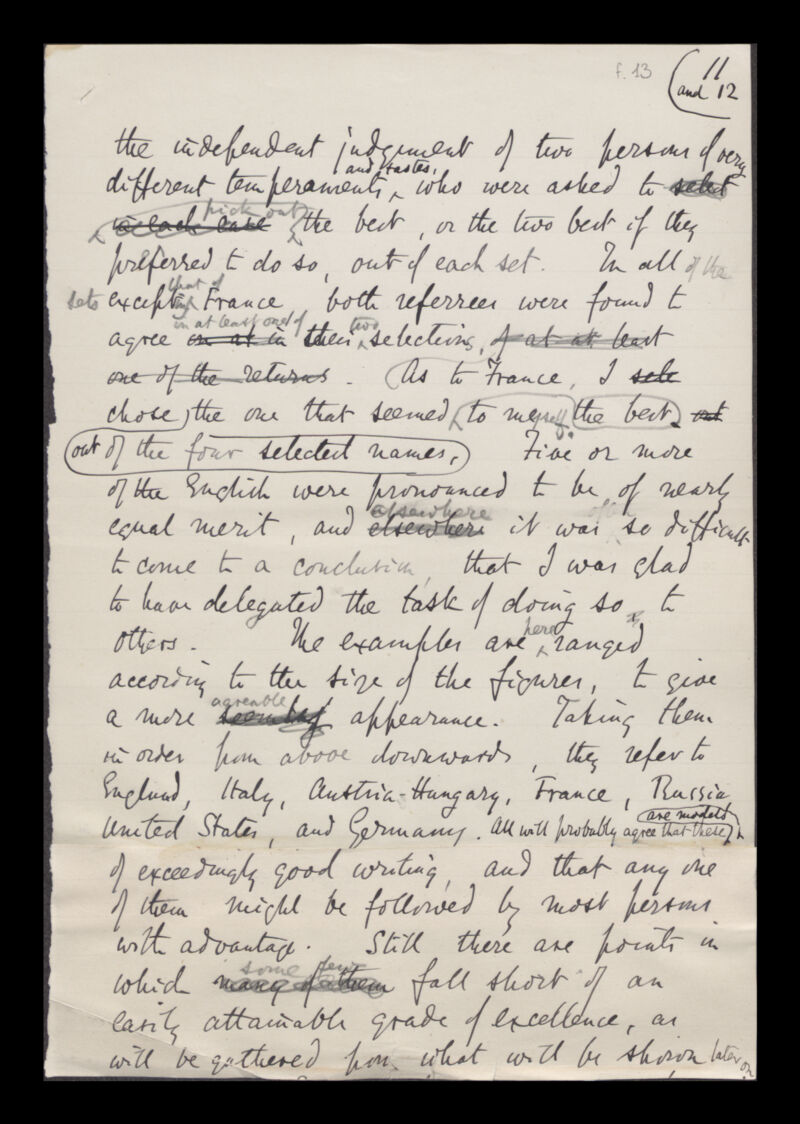 f. 13
11
and 12
the independent judgement of two persons of very
and tastes,
different temperaments, who were asked to select
pick out
in each case the best, or the two best if they
preferred to do so, out of each set. In all of the
that of
sets except France both referrees were found to
in at least one of two
agree on at in their selections, of at at least
one of the returns. As to France, I sele
chose the one that seemed to myself the best out
out of the four selected names. Five or more
of the English were pronounced to be of nearly
elsewhere often
equal merit, and elsewhere it was so difficult
to come to a conclusion, that I was glad
to have delegated the task of doing so to
others. The examples are here ranged
according to the size of the figures, to give
agreable
a more seemly appearance. Taking them
in order from above downwards, they refer to
England, Italy, Austria-Hungary, France, Russia
are models
United States, and Germany. All will probably agree that these
of exceedingly good writing, and that any one
of them might be followed by most persons
with advantage. Still there are points in
some few
which many of them fall short of an
easily attainable grade of excellence, as
will be gathered from what will be shown later on